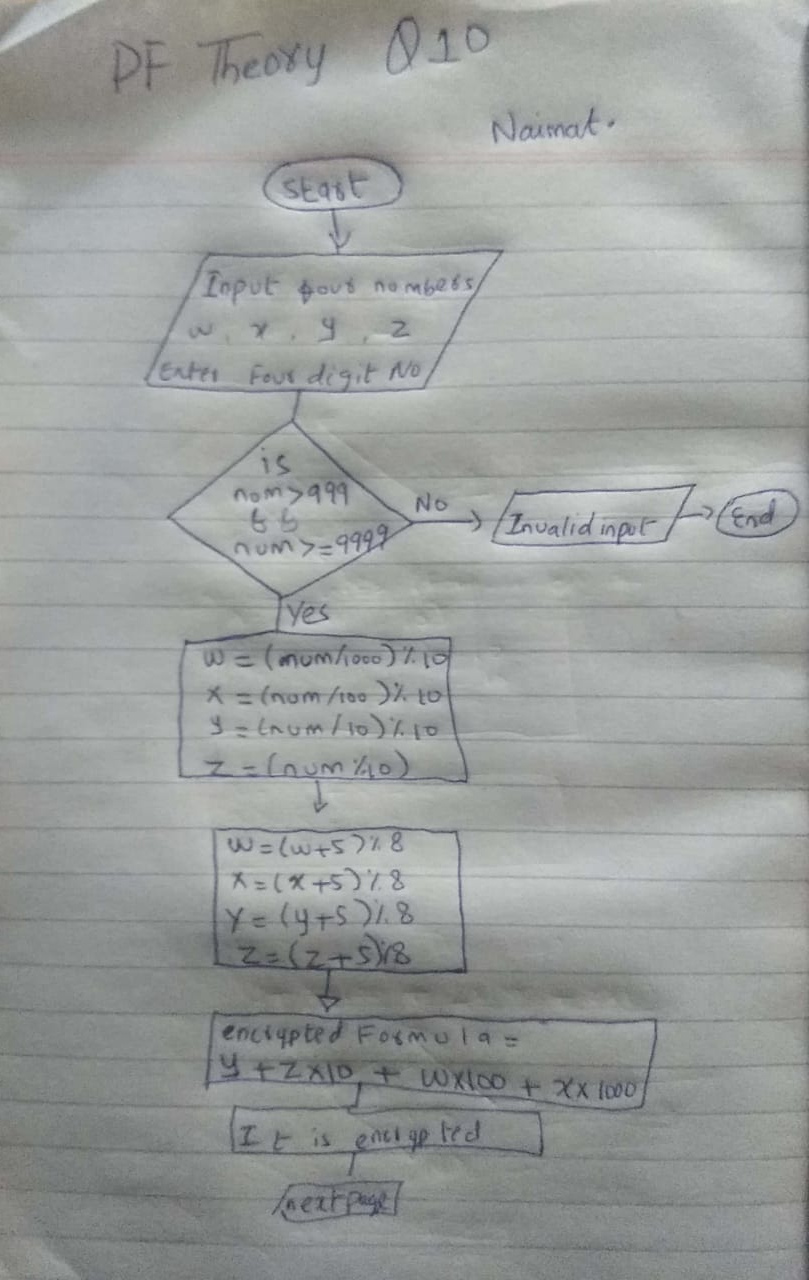 PF Theory Q10
Naimat.
Start
Input four numbers
w, x, y, z
Enter Four digit No
is
nom>999
&&
num>=9999
No
Invalid input
End
Yes
W = (num/1000)%10
X = (num/100)%10
y = (num/10)%10
Z = (num%10)
W=(w+5)%8
X=(x+5)%8
Y=(y+5)%8
Z=(z+5)%8
encrypted Formula =
y + Z×10 + W×100 + X×1000
It is encrypted
next page